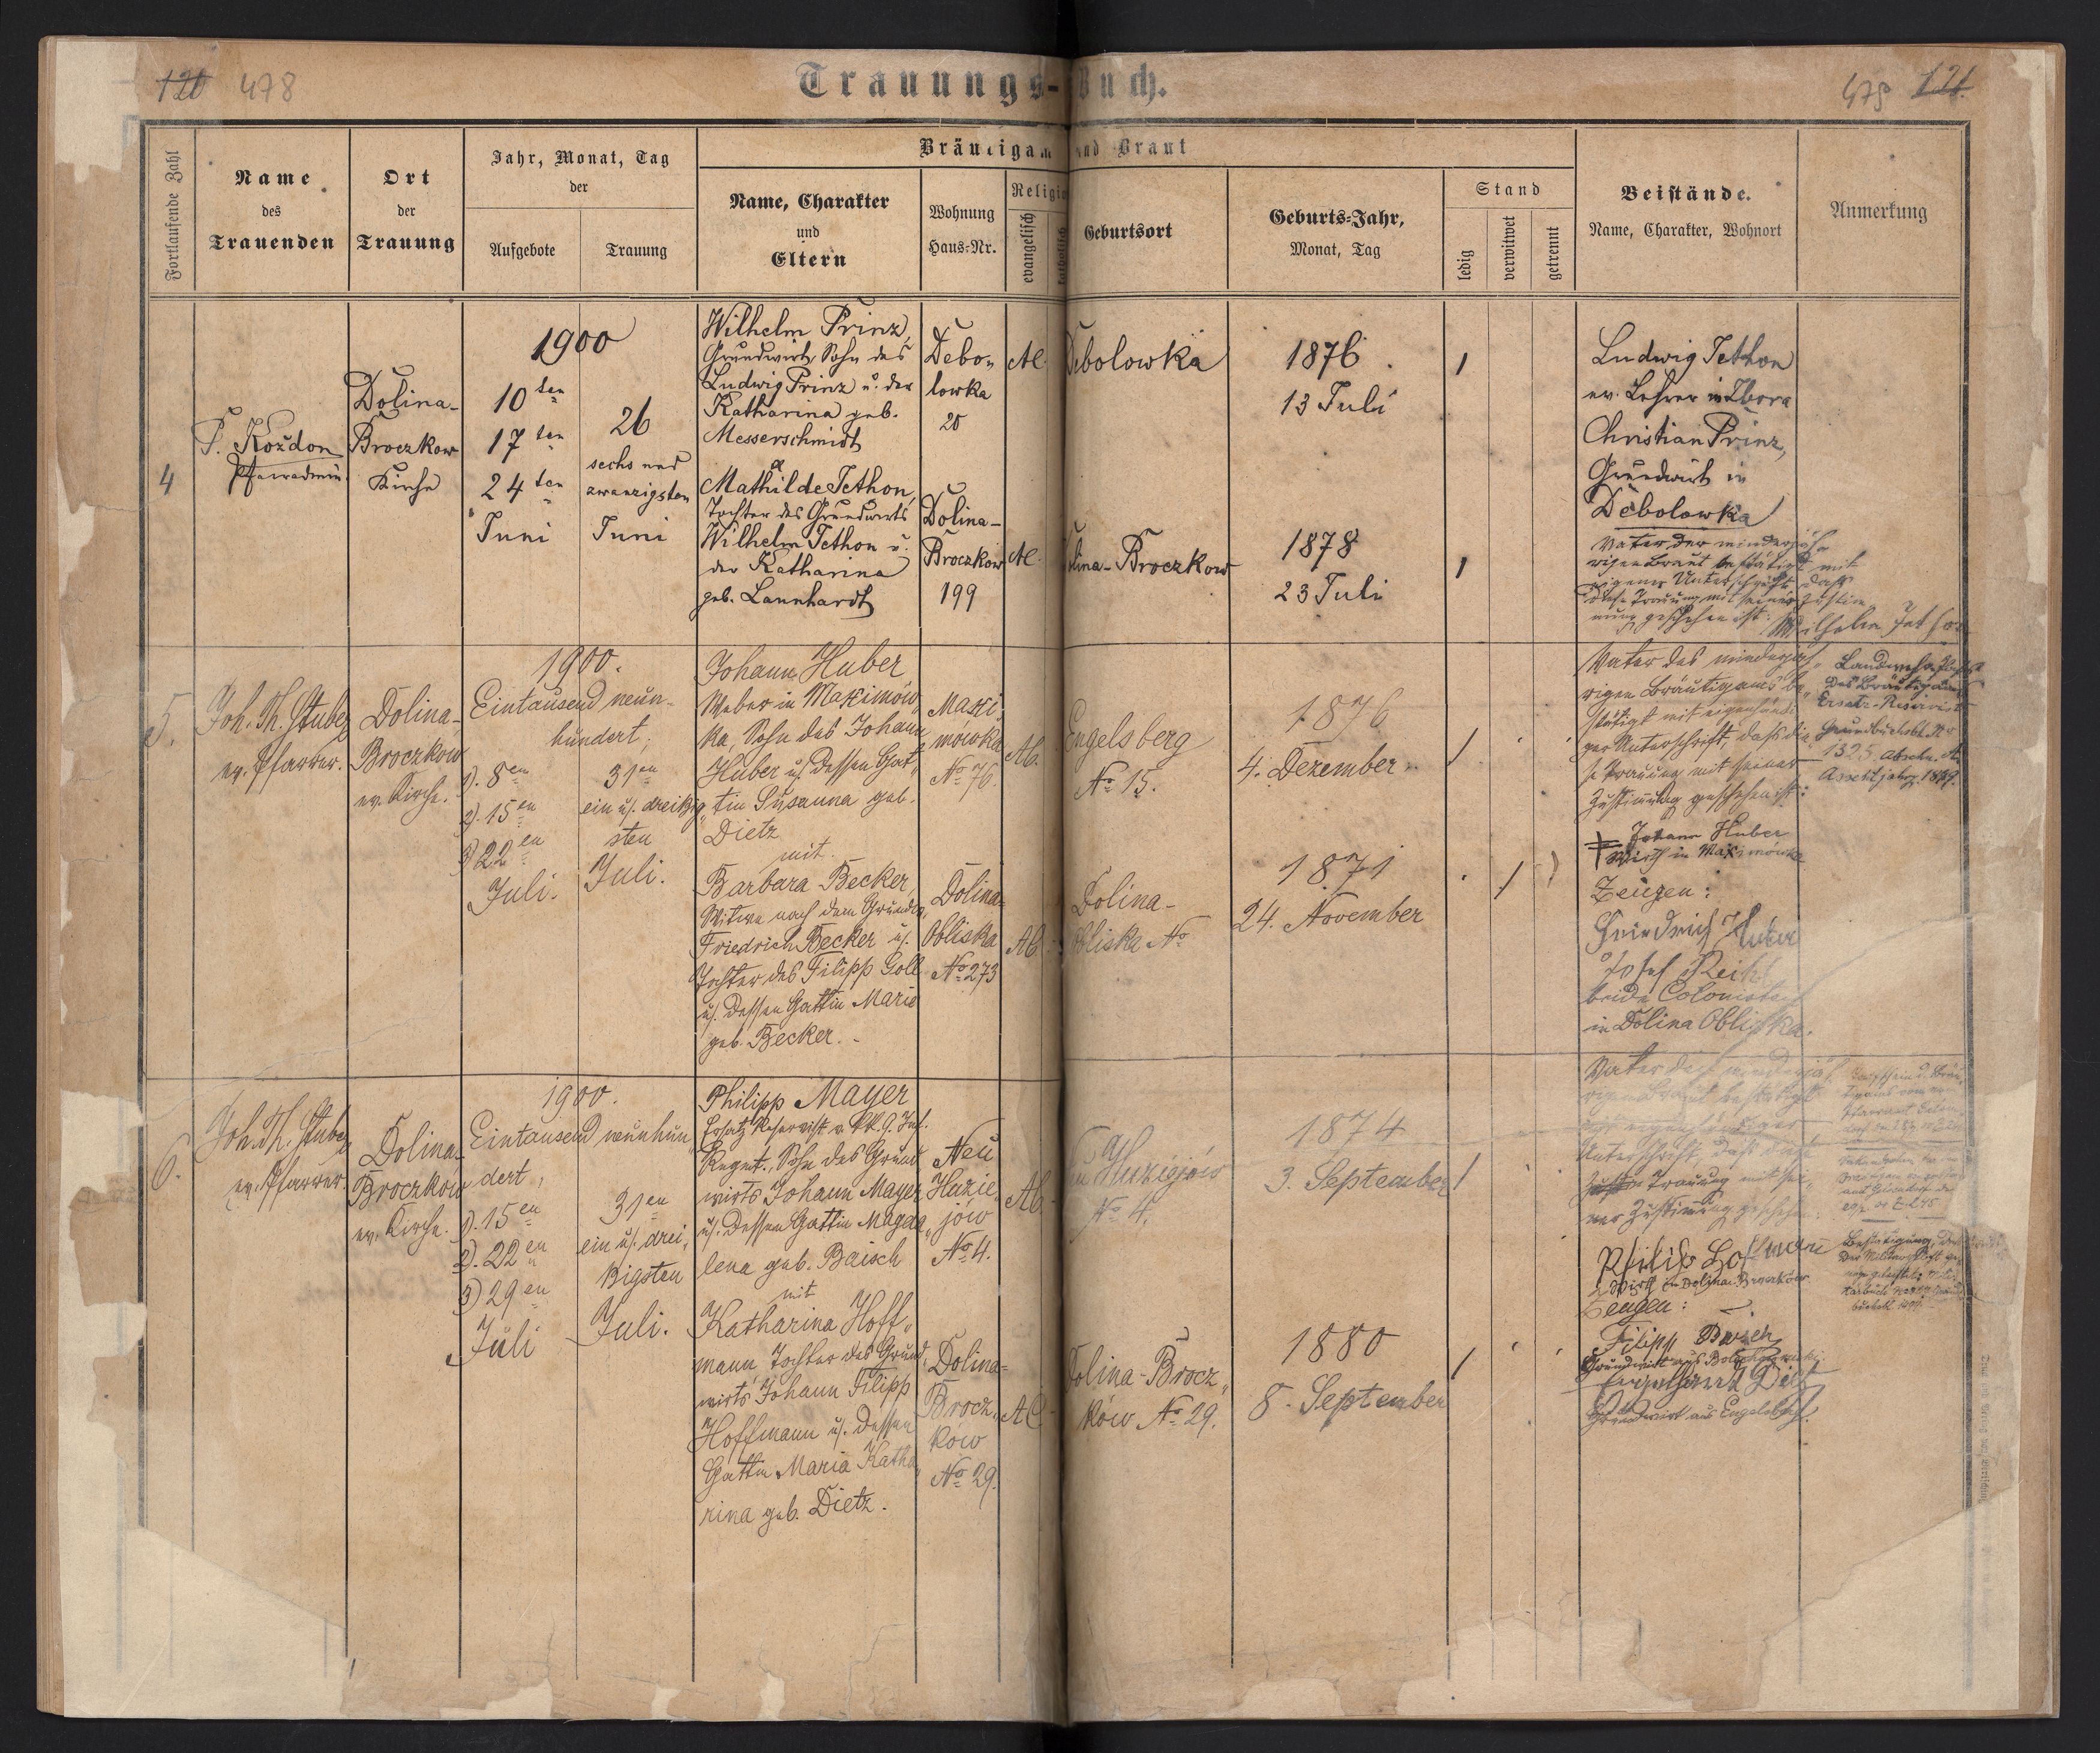 120 478
Trauungs-Buch.
479 121.
Fortlaufende Zahl
Name
des
Trauenden
Ort
der
Trauung
Jahr, Monat, Tag
der
Aufgebote
Trauung
Bräutigam und Braut
Name, Charakter
und
Eltern
Wohnung
Haus-Nr.
Religio
evangelisch
katholisch
Geburtsort
Geburts-Jahr,
Monat, Tag
Stand
ledig
verwitwet
getrennt
Beistände.
Name, Charakter, Wohnort
Anmerkung
4
P. Kożdon
Pfarradmin.
Dolina-
Broczkow
Kirche
1900
10 ten
17 ten
24 ten
Juni
26
sechs und
zwanzigsten
Juni
Wilhelm Prinz,
Grundwirth, Sohn des
Ludwig Prinz u. der
Katharina geb.
Messerschmidt
Debo-
lowka
20
AC.
Debolowka
1876
13 Juli
Mathilde Jethon,
Tochter des Grundwirts
Wilhelm Jethon u.
der Katharina
geb. Lannhardt
Dolina-
Broczkow
199
AC.
olina-Broczkow
1878
23 Juli
Ludwig Jethon
ev. Lehrer in Zbora
Christian Prinz,
Grundwirt in
Debolowka
Vater der minderjäh-
rigen Braut bestätigt mit
eigener Unterschrift dass
diese Trauung mit seiner Zustim
mung geschehen ist:
Wilhelm Jethon
5.
Joh. Th. Stuber
ev. Pfarrer.
Dolina-
Broczkow
ev. Kirche.
1900.
Eintausend neun-
hundert;
1). 8en
2). 15en
3) 22en
Juli.
31en
ein u. dreißig-
sten
Juli.
Johann Huber
Weber in Maximow-
ka, Sohn des Johann
Huber u. dessen Gat-
tin Susanna geb.
Dietz
mit
Maxi-
mowka
No 76.
AC.
Engelsberg
No 15.
1876
4. Dezember
Barbara Becker,
Witwe nach dem Grundw.
Friedrich Becker u.
Tochter des Filipp Goll
u. dessen Gattin Marie
geb. Becker.
Dolina-
Obliska
No 273
AC.
Dolina-
Obliska No
1871
24. November
Vater des minderjäh-
rigen Bräutigams be-
stätigt mit eigenhändi-
ger Unterschrift, daß die-
se Trauung mit seiner
Zustimmung geschehen ist:
Johann Huber
Wirth in Maximówka
Zeugen:
Friedrich Huber
Josef Reich
beide Colonisten
in Dolina Obliska.
des Bräutigams
Ersatz-Reservist
Grundbuchsbl. No
1325
Assentjahr 1899.
6.
Joh. Th. Stuber
ev. Pfarrer.
Dolina-
Broczków
ev. Kirche.
1900.
Eintausend neunhun-
dert,
1). 15en
2). 22en
3) 29en
Juli
31en
ein u. drei-
ßigsten
Juli.
Philipp Mayer
Ersatz Reservist v. kk. 9. Inf.
Regmt., Sohn des Grund
wirts Johann Mayer
u. dessen Gattin Magda-
lena geb. Baisch
mit
Neu
Huzie-
jow
No 4.
AC.
Huziejów
No 4.
1874
3. September
Katharina Hoff-
mann, Tochter des Grund-
wirts Johann Filipp
Hoffmann u. dessen
Gattin Maria Katha-
rina geb. Dietz.
Dolina-
Brocz-
kow
No 29.
AC
Dolina-Brocz-
ków No 29.
1880
8. September
Vater der minderjäh-
rigen Braut bestätigt
mit eigenhändiger
Unterschrift, daß diese
Trauung mit sei-
ner Zustimmung geschehen:
Philip Hofmann
Wirth in Dolina-Broczków
Zeugen:
Filipp Baisch
Grundwirt aus
Grundwirt aus Engelsberg.